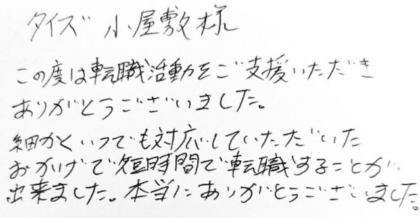 タイズ 小屋敷様
この度は転職活動をご支援いただき
ありがとうございました。
細かくいつでも対応していただいた
おかげで短時間で転職することが
出来ました。本当にありがとうございました。